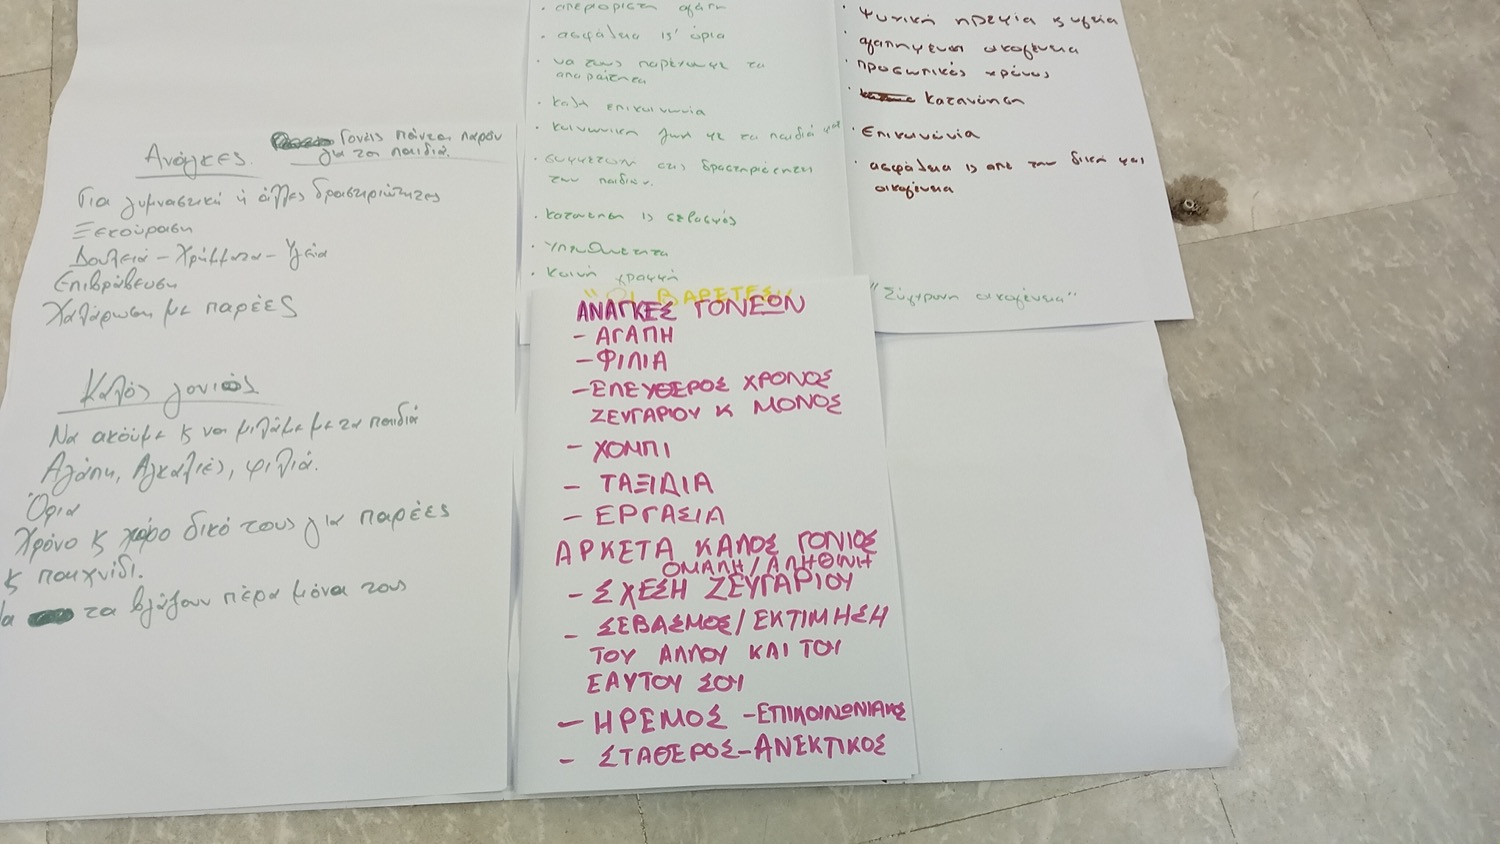 Ανάγκες.
Γονείς πάντα παρόν
για τα παιδιά.
Για γυμναστική ή άλλες δραστηριότητες
Ξεκούραση
Δουλειά - Χρήμματα - Υγεία
Επιβράβευση
Χαλάρωση με παρέες
Καλός γονιός
Να ακούμε κ να μιλάμε με τα παιδιά
Αγάπη, Αγκαλιές, φιλιά.
Όρια
Χρόνο κ χώρο δικό τους για παρέες
κ παιχνίδι.
τα βγάζουν πέρα μόνα τους
· απεριόριστη αγάπη
· ασφάλεια κ' όρια
· να τους παρέχουμε τα
απαραίτητα
· καλή επικοινωνία
· κοινωνική ζωή με τα παιδιά μας
· συμμετοχή στις δραστηριότητες
των παιδιών.
· κατανόηση κ σεβασμός
· Υπευθυνότητα
· Κοινή γραμμή
"ΟΙ ΒΑΡΕΤΕΣ"
ΑΝΑΓΚΕΣ ΓΟΝΕΩΝ
- ΑΓΑΠΗ
- ΦΙΛΙΑ
- ΕΛΕΥΘΕΡΟΣ ΧΡΟΝΟΣ
ΖΕΥΓΑΡΙΟΥ Κ ΜΟΝΟΣ
- ΧΟΜΠΙ
- ΤΑΞΙΔΙΑ
- ΕΡΓΑΣΙΑ
ΑΡΚΕΤΑ ΚΑΛΟΣ ΓΟΝΙΟΣ
ΟΜΑΛΗ/ΑΛΗΘΙΝΗ
- ΣΧΕΣΗ ΖΕΥΓΑΡΙΟΥ
- ΣΕΒΑΣΜΟΣ/ΕΚΤΙΜΗΣΗ
ΤΟΥ ΑΛΛΟΥ ΚΑΙ ΤΟΥ
ΕΑΥΤΟΥ ΣΟΥ
- ΗΡΕΜΟΣ - ΕΠΙΚΟΙΝΩΝΙΑΚΟΣ
- ΣΤΑΘΕΡΟΣ - ΑΝΕΚΤΙΚΟΣ
· Ψυχική ηρεμία κ υγεία
· αγαπημένη οικογένεια
· προσωπικός χρόνος
· κατανόηση
· Επικοινωνία
· ασφάλεια κ από την δική μας
οικογένεια
"Σύγχρονη οικογένεια"